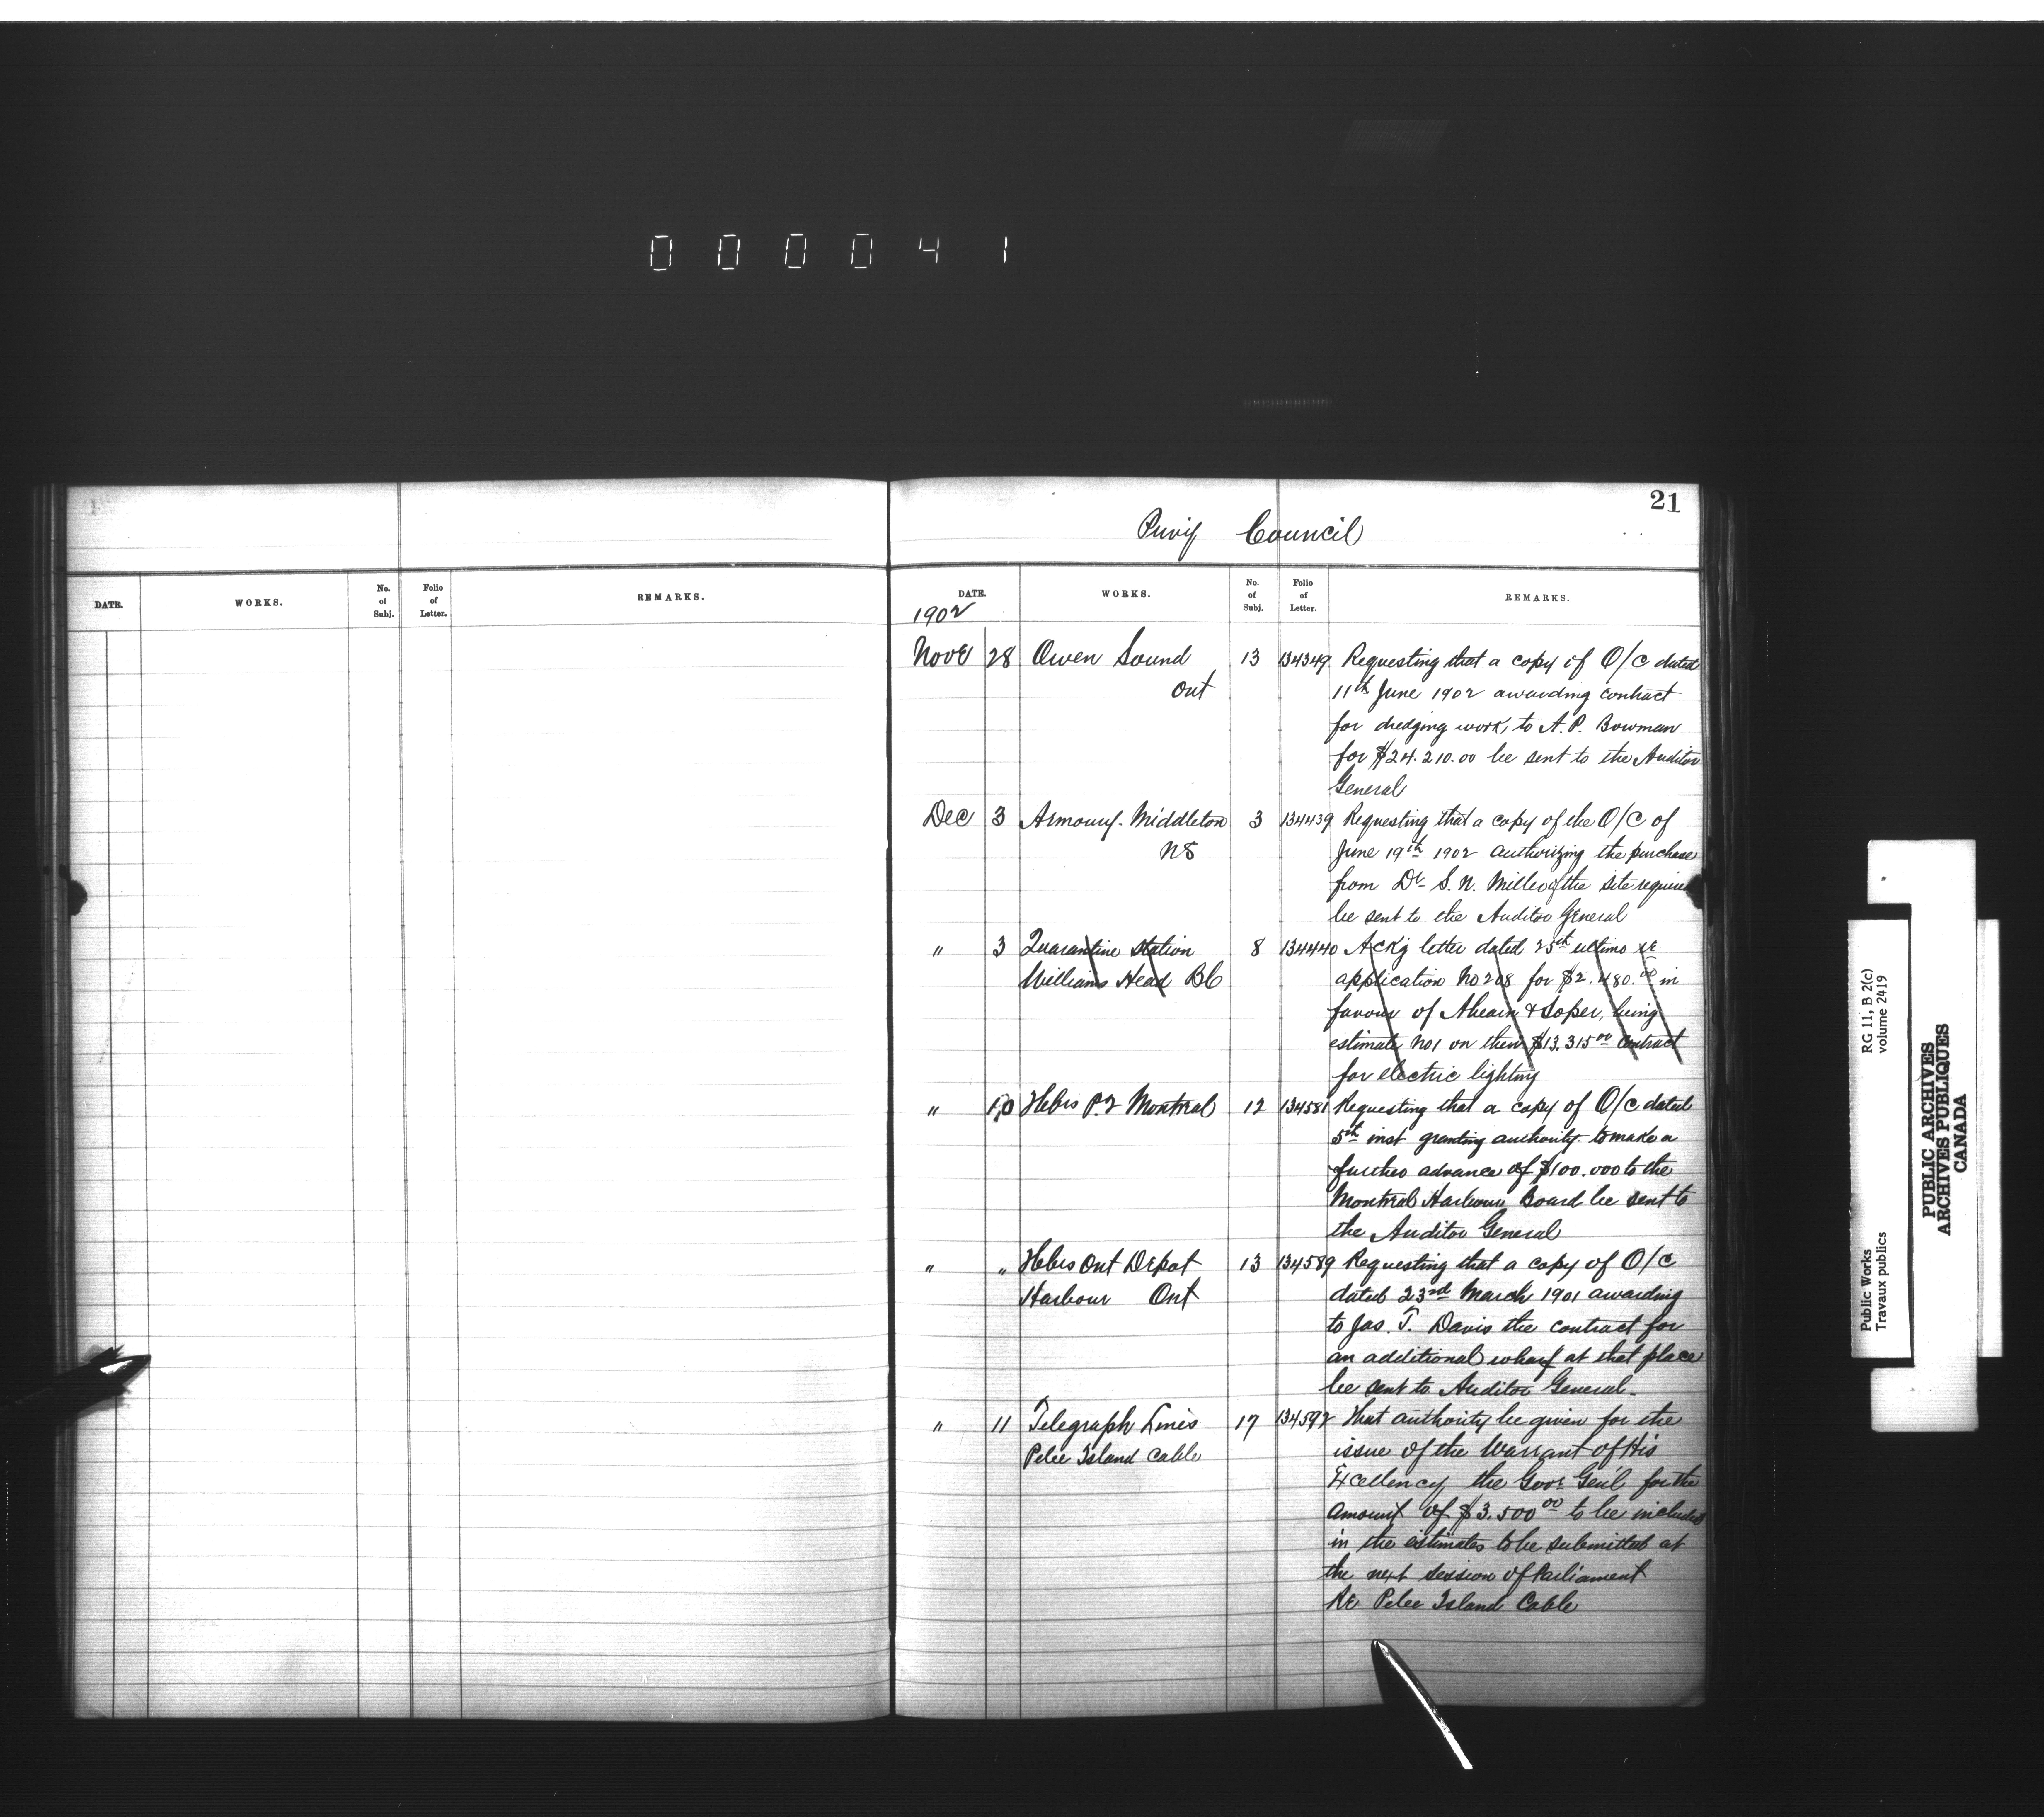 000041
21
Privy Council
DATE. WORKS. No. of Subj. Folio of Letter. REMARKS.
DATE. WORKS. No. of Subj. Folio of Letter. REMARKS.
1902
Nove 28 Owen Sound 13 134349 Requesting that a copy of O/C dated
Ont 11th June 1902 awarding contract
for dredging work, to A. P. Bowman
for $24.210.00 be sent to the Auditor
General
Dec 3 Armoury - Middleton 3 134439 Requesting that a copy of the O/C of
NS June 19th 1902 authorizing the purchase
from Dr S. N. Miller of the site required
be sent to the Auditor General
" 3 Quarantine Station 8 134440 Ackg letter dated 25th ultimo re
Williams Head BC application No 208 for $2.480.00 in
favour of Ahearn & Soper, being
estimate No 1 on their $13.315 00 contract
for electric lighting
" 10 Hbrs P.2 Montreal 12 134581 Requesting that a copy of O/C dated
5th inst granting authority to make a
further advance of $100.000 to the
Montreal Harbour Board be sent to
the Auditor General
" " Hbrs Ont Depot 13 134589 Requesting that a copy of O/C
Harbour Ont dated 23rd March 1901 awarding
to Jas. T. Davis the contract for
an additional wharf at that place
be sent to Auditor General -
" 11 Telegraph Lines 17 134592 That authority be given for the
Pelee Island Cable issue of the Warrant of His
Excellency the Govr Gen'l for the
amount of $3.500 00 to be included
in the estimates to be submitted at
the next session of Parliament
Re Pelee Island Cable
Public Works RG 11, B 2(c)
Travaux publics volume 2419
PUBLIC ARCHIVES
ARCHIVES PUBLIQUES
CANADA